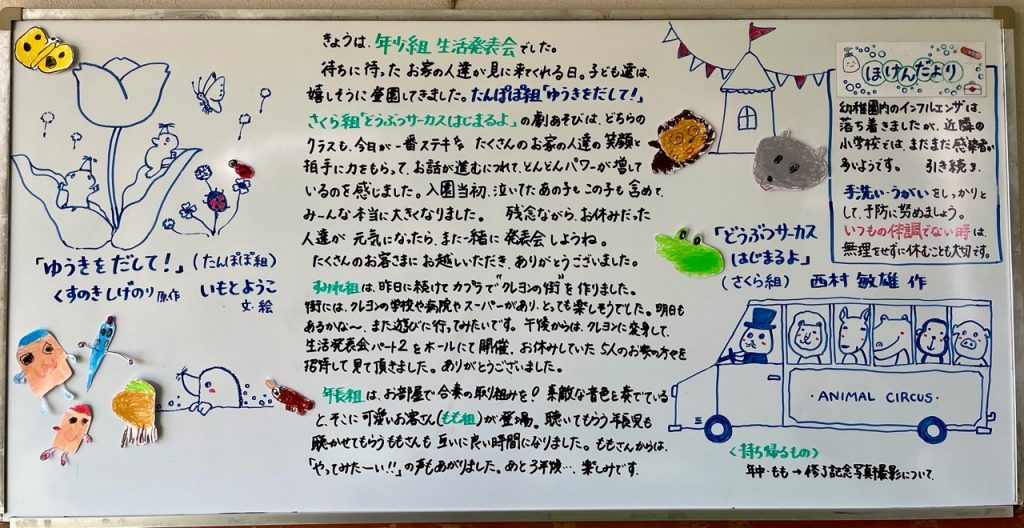 きょうは、年少組 生活発表会でした。
待ちに待った お家の人達が見に来てくれる日。子ども達は、
嬉しそうに登園してきました。たんぽぽ組「ゆうきをだして!」
さくら組「どうぶつサーカスはじまるよ」の劇あそびは、どちらの
クラスも、今日が一番ステキな たくさんのお家の人達の笑顔と
拍手に力をもらって、お話が進むにつれて、どんどんパワーが増して
いるのを感じました。入園当初、泣いてたあの子もこの子も含めて、
みーんな本当に大きくなりました。 残念ながら、お休みだった
人達が 元気になったら、また一緒に発表会しようね。
たくさんのお客さまにお越しいただき、ありがとうございました。
すみれ組は、昨日に続けてカプラで"クレヨンの街"を作りました。
街には、クレヨンの学校や病院やスーパーがあり、とっても楽しそうでした。明日も
あるかな〜、また遊びに行ってみたいです。午後からは、クレヨンに変身して、
生活発表会パート2をホールにて開催、お休みしていた5人のお家の方々を
招待して見て頂きました。ありがとうございました。
年長組は、お部屋で合奏の取り組みを♪ 素敵な音色を奏でている
と、そこに可愛いお客さん(もも組)が登場。聴いてもらう年長児も
聴かせてもらうももさんも 互いに良い時間になりました。ももさんからは、
「やってみたーい!!」の声もあがりました。あと3年後…、楽しみです。
「ゆうきをだして!」(たんぽぽ組)
くすのきしげのり 原作 いもとようこ
文・絵
ほけんだより
幼稚園内のインフルエンザは、
落ち着きましたが、近隣の
小学校では、まだまだ感染者が
多いようです。 引き続き、
手洗い・うがいをしっかりと
して、予防に努めましょう。
いつもの体調でない時は、
無理をせずに休むことも大切です。
「どうぶつサーカス
はじまるよ」
(さくら組) 西村 敏雄 作
・ANIMAL CIRCUS・
<持ち帰るもの>
年中・もも→修了記念写真撮影について